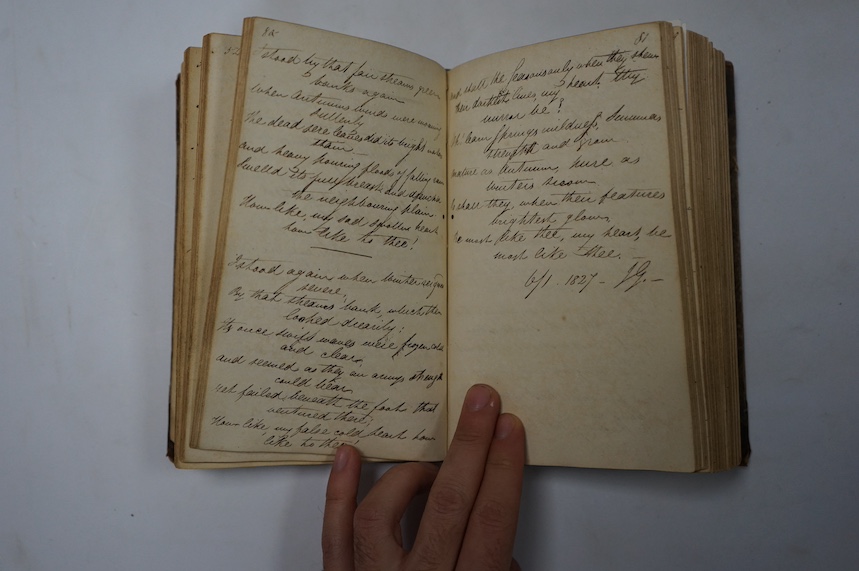 I stood by that fair streams green
banks again
when Autumns winds were moaning
sullenly
The dead sere leaves did its bright waters
stain —
and heavy pouring floods of falling rain
Swelled its pure breast and
the neighbouring plain
How like, my sad swollen heart
how like to thee!
I stood again when Winter reigned
severe,
By that streams bank, which then
looked drearily;
Its once swift waves were frozen
and clear,
and seemed as they an armys strength
could bear
yet failed beneath the foot that
ventured there;
How like, my false cold heart how
like to thee!
81
and shall the Seasons only when they shew
their darkest lines, my heart, thy
mirror be?
Oh learn Springs mildness, Summers
strength and grow
mature as Autumn, pure as
winters snow
So shall they, when their features
brightest glow,
be most like thee, my heart, be
most like thee. —
6/1 . 1827 — J.G. —